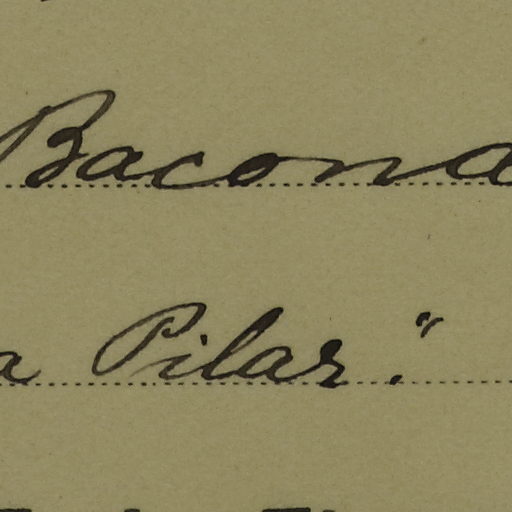 Bacona
a Pilar."